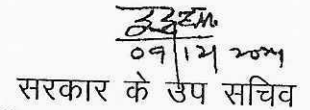 09/12/2024
सरकार के उप सचिव